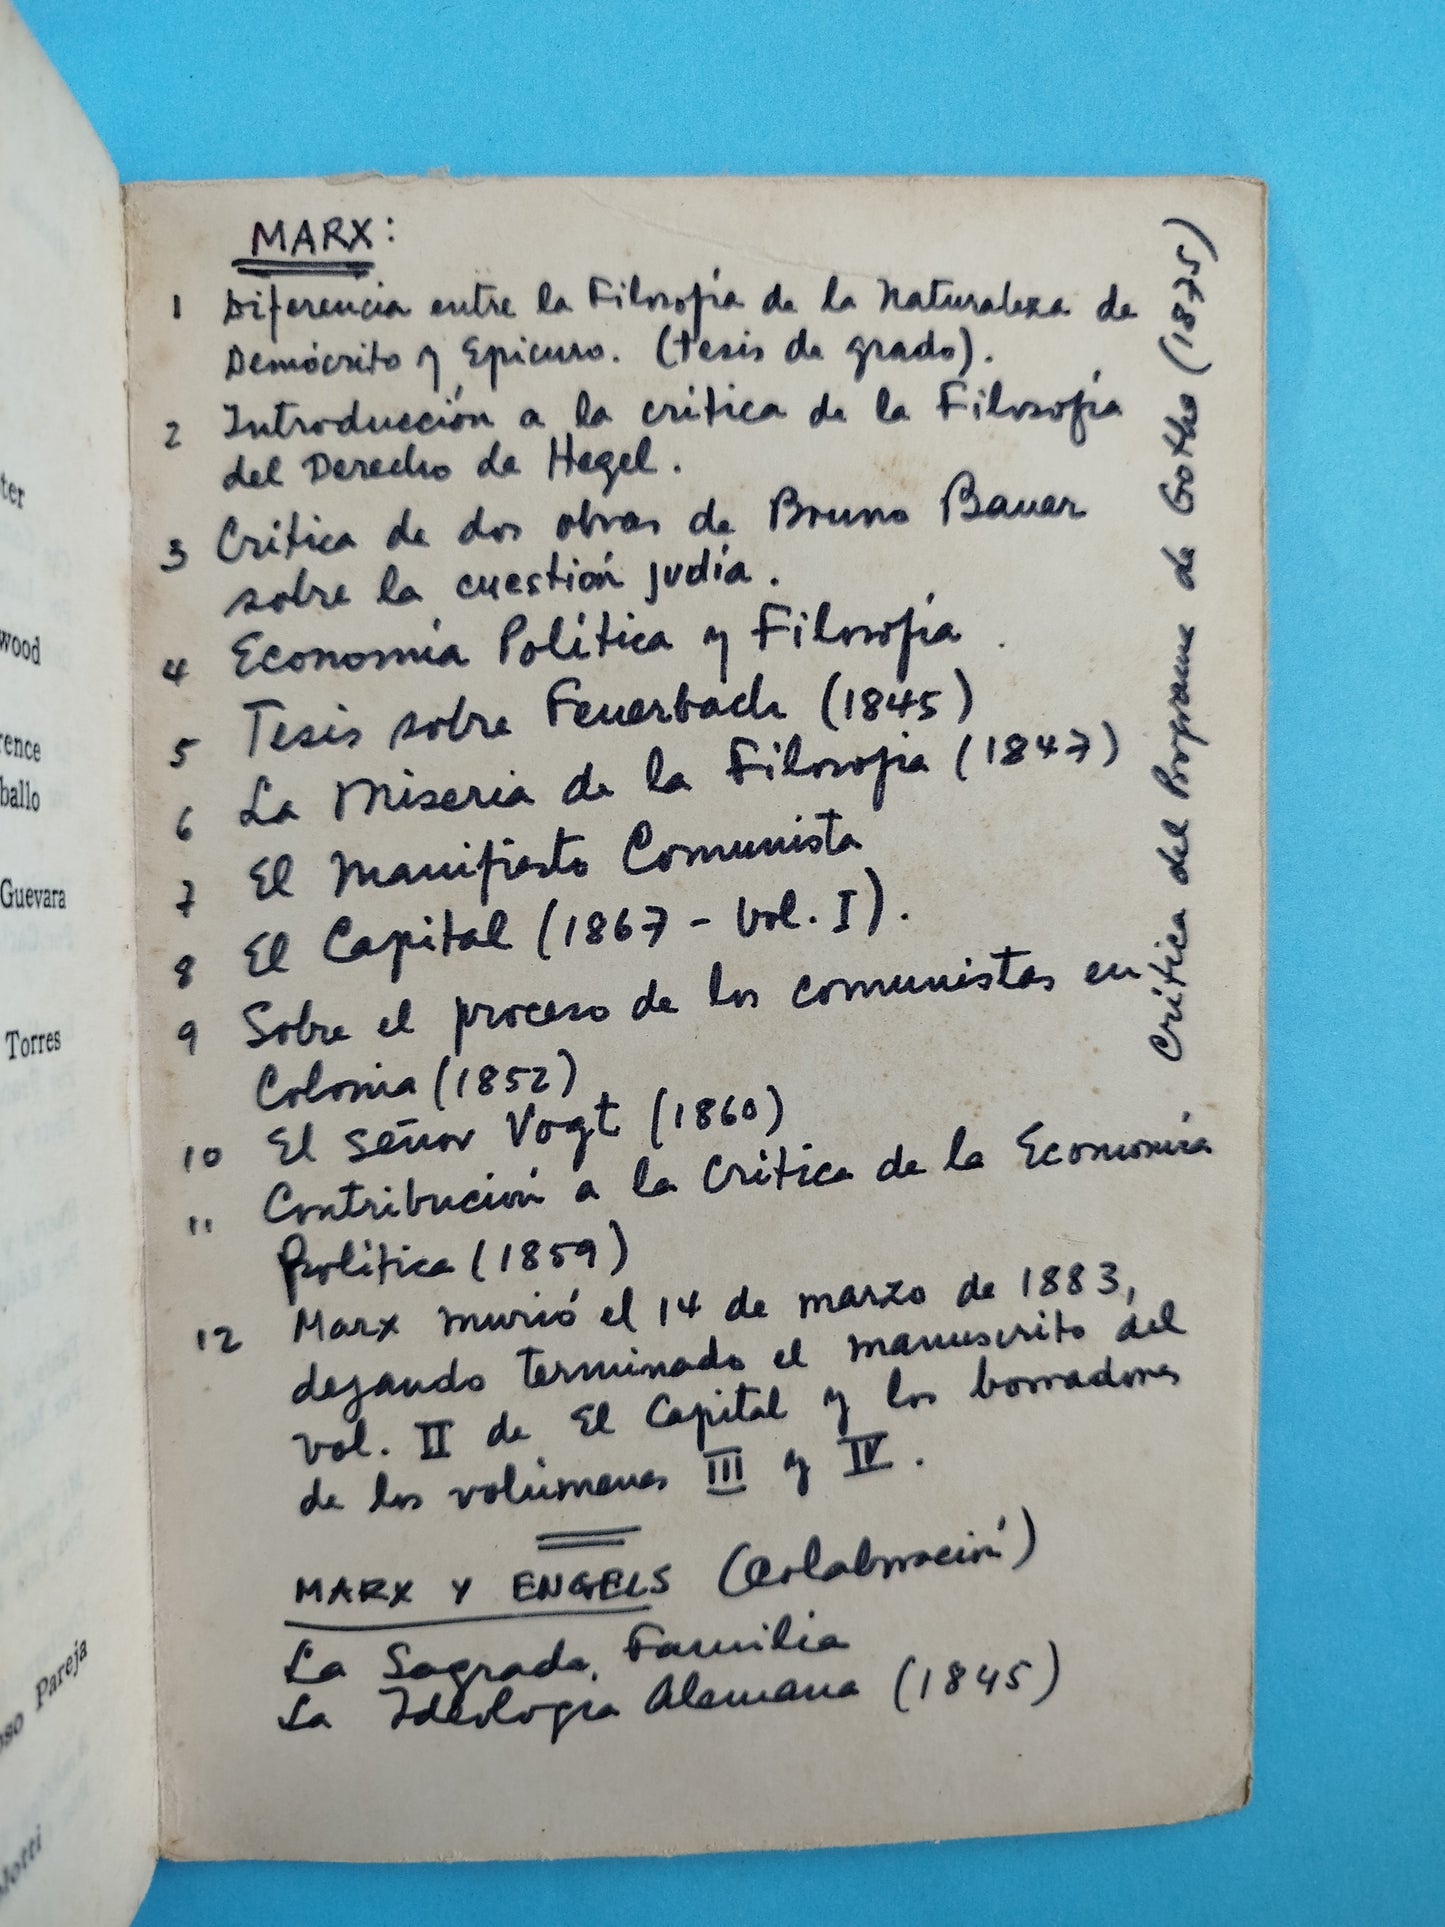 ter
wood
rence
ballo
Guevara
Torres
oso Pareja
lotti
MARX:
1 Diferencia entre la Filosofía de la Naturaleza de
Demócrito y Epicuro. (tesis de grado).
2 Introducción a la crítica de la Filosofía
del Derecho de Hegel.
3 Crítica de dos obras de Bruno Bauer
sobre la cuestión judía.
4 Economía Política y Filosofía.
5 Tesis sobre Feuerbach (1845)
6 La Miseria de la Filosofía (1847)
7 El Manifiesto Comunista
8 El Capital (1867 - vol. I).
9 Sobre el proceso de los comunistas en
Colonia (1852)
10 El señor Vogt (1860)
11 Contribución a la Crítica de la Economía
Política (1859)
12 Marx murió el 14 de marzo de 1883,
dejando terminado el manuscrito del
vol. II de El Capital y los borradores
de los volúmenes III y IV.
MARX Y ENGELS (Colaboración)
La Sagrada Familia
La Ideología Alemana (1845)
Crítica del Programa de Gotha (1875)